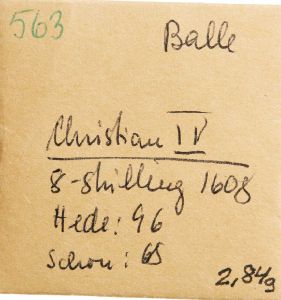 563
Balle
Christian IV
8-skilling 1608
Hede: 96
Schou: 65
2,84g